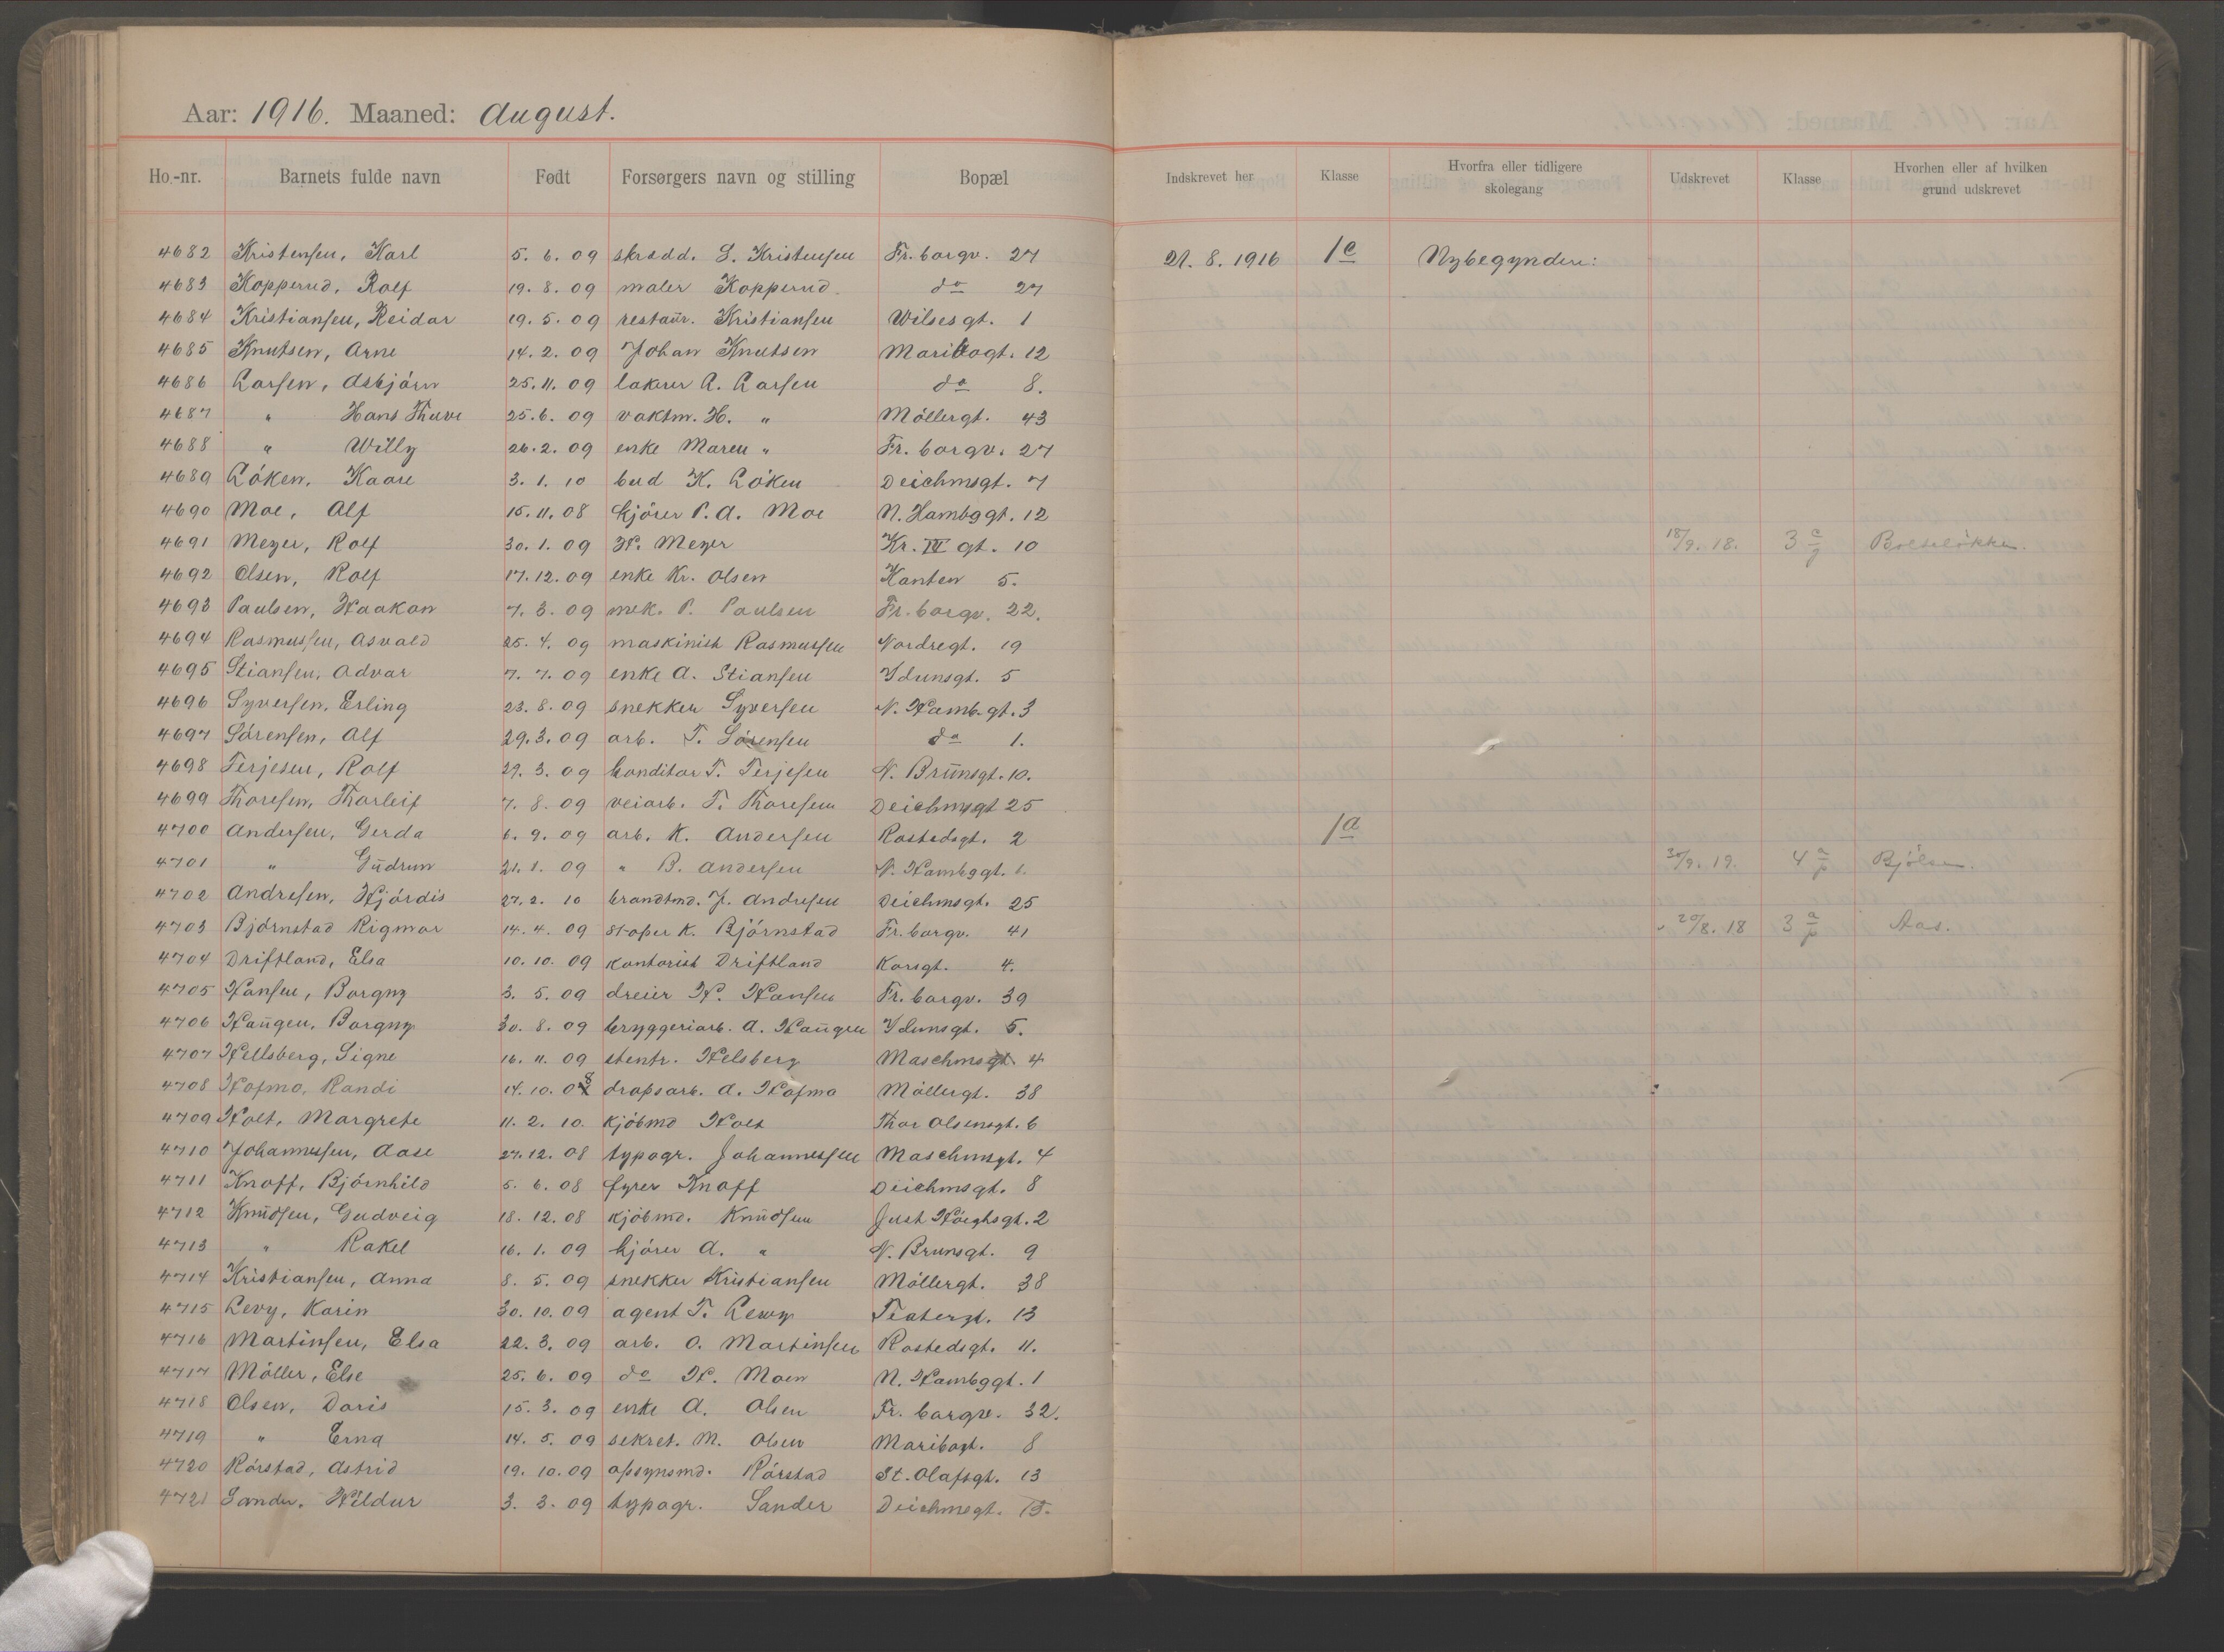 Aar: 1916. Maaned: August.
Ho.-nr. Barnets fulde navn Født Forsørgers navn og stilling Bopæl Indskrevet her Klasse Hvorfra eller tidligere skolegang Udskrevet Klasse Hvorhen eller af hvilken grund udskrevet
4682 Kristensen, Karl 5. 6. 09 skrædd. S. Kristensen Fr. borgv. 27 21. 8. 1916 1c Nybegyndere:
4683 Kopperud, Rolf 19. 8. 09 maler Kopperud do 27
4684 Kristiansen, Reidar 19. 5. 09 restaur. Kristiansen Wilsesgt. 1
4685 Knutsen, Arne 14. 2. 09 Johan Knutsen Maribogt. 12
4686 Larsen, Asbjörn 25. 11. 09 lakerer A. Larsen do 8.
4687 " Hans Thuve 25. 6. 09 vaktm. H. " Möllergt. 43
4688 " Willy 26. 2. 09 enke Maren " Fr. borgv. 27
4689 Löken, Kaare 3. 1. 10 bud K. Löken Deichmsgt. 7
4690 Moe, Alf 15. 11. 08 kjörer P. A. Moe N. Hambggt. 12
4691 Meyer, Rolf 30. 1. 09 H. Meyer Kr. IV gt. 10 18/9. 18. 3 c/g Bolteløkken.
4692 Olsen, Rolf 17. 12. 09 enke Kr. Olsen Kanten 5.
4693 Paulsen, Haakon 7. 3. 09 mek. P. Paulsen Fr. borgv. 22.
4694 Rasmussen, Asvald 25. 4. 09 maskinist Rasmussen Nordregt. 19
4695 Stiansen, Advar 7. 7. 09 enke A. Stiansen Ydunsgt. 5
4696 Syversen, Erling 23. 8. 09 snekker Syversen N. Hamb. gt. 3
4697 Sörensen, Alf 29. 3. 09 arb. T. Sörensen do 1.
4698 Terjesen, Rolf 29. 3. 09 konditor T. Terjesen N. Brunsgt. 10.
4699 Thoresen, Thorleif 7. 8. 09 veiarb. T. Thoresen Deichmsgt 25
4700 Andersen, Gerda 6. 9. 09 arb. K. Andersen Rostedsgt. 2 1a
4701 " Gudrun 21. 1. 09 " B. Andersen N. Hambggt. 6. 30/9. 19. 4 a/p Bjölsen.
4702 Andresen, Hjördis 27. 2. 10 brandtmd. J. Andresen Deichmsgt. 25
4703 Björnstad Rigmor 14. 4. 09 stöper K. Björnstad Fr. borgv. 41 20/8. 18 3 a/p Aas.
4704 Driftland, Elsa 10. 10. 09 kontorist Driftland Korsgt. 4.
4705 Hansen, Borgny 3. 5. 09 dreier H. Hansen Fr. borgv. 39
4706 Haugen, Borgny 30. 8. 09 bryggeriarb. A. Haugen Ydunsgt. 5.
4707 Hellsberg, Signe 16. 11. 09 stentr. Helsberg Maschmsgt. 4
4708 Hofmo, Randi 14. 10. 08 dropsarb. A. Hofmo Möllergt. 38
4709 Holt, Margrete 11. 2. 10. kjöbmd Holt Thor Olsensgt. 6
4710 Johannessen, Aase 27. 12. 08 typogr. Johannessen Maschmsgt. 4
4711 Knoff, Björnhild 5. 6. 08 fyrer Knoff Deichmsgt. 8
4712 Knudsen, Gudveig 18. 12. 08 kjöbmd. Knudsen Just Höeghsgt. 2
4713 " Rakel 16. 1. 09 kjörer A. " N. Brunsgt. 9
4714 Kristiansen, Anna 8. 5. 09 snekker Kristiansen Möllergt. 38
4715 Levy, Karin 30. 10. 09 agent T. Levy Teatergt. 13
4716 Martinsen, Elsa 22. 3. 09 arb. O. Martinsen Rostedsgt. 11.
4717 Möller, Else 25. 6. 09 do H. Moen N. Hambggt. 1
4718 Olsen, Doris 15. 3. 09 enke A. Olsen Fr. borgv. 32.
4719 " Erna 14. 5. 09 sekret. M. Olsen Maribogt. 8
4720 Rörstad, Astrid 19. 10. 09 opsynsmd. Rörstad St. Olafsgt. 13
4721 Sander, Hildur 3. 3. 09 typogr. Sander Deichmsgt. 15.